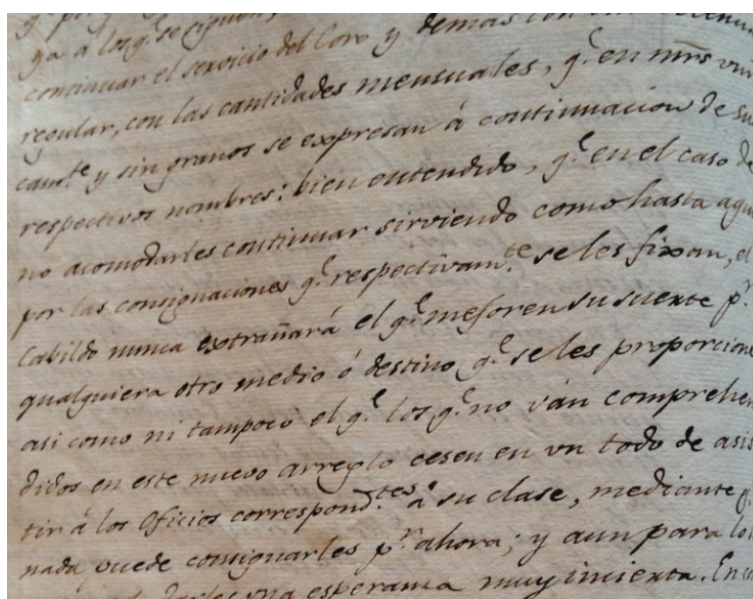 ya a los q.e se siguen,
continuar el servicio del Coro y demas con
regular, con las cantidades mensuales, q.e en mrs
cam.te y sin granos se expresan á continuacion de su
respectivos nombres: bien entendido, q.e en el caso de
no acomodarles continuar sirviendo como hasta aqui
por las consignaciones q.e respectivam.te se les fixan, el
Cabildo nunca extrañará el q.e mejoren su suerte p.r
qualquiera otro medio ó destino q.e se les proporcione
asi como ni tampoco el q.e los q.e no ván comprehen
didos en este nuevo arreglo cesen en un todo de asis
tir á los Oficios correspond.tes a su clase, mediante q.
nada puede consignarles p.r ahora; y aun para los
darles una esperanza muy incierta. En